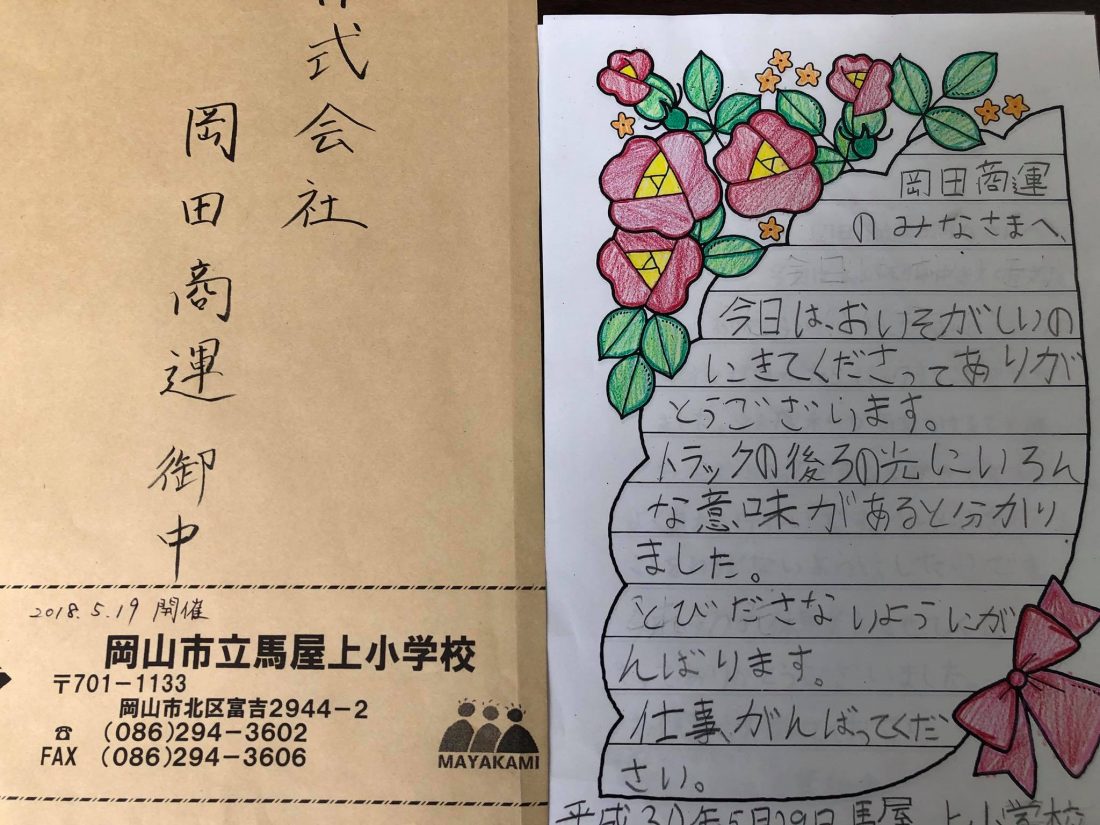 式会社
岡田商運 御中
2018.5.19 開催
岡山市立馬屋上小学校
〒701-1133
岡山市北区富吉2944-2
☎ (086)294-3602
FAX (086)294-3606
MAYAKAMI
岡田商運
のみなさまへ、
今日は、おいそがしいの
にきてくださってありが
とうございます。
トラックの後ろの光にいろん
な意味があると分かり
ました。
とびださないようにが
んばります。
仕事がんばってくだ
さい。
平成30年5月29日 馬屋上小学校